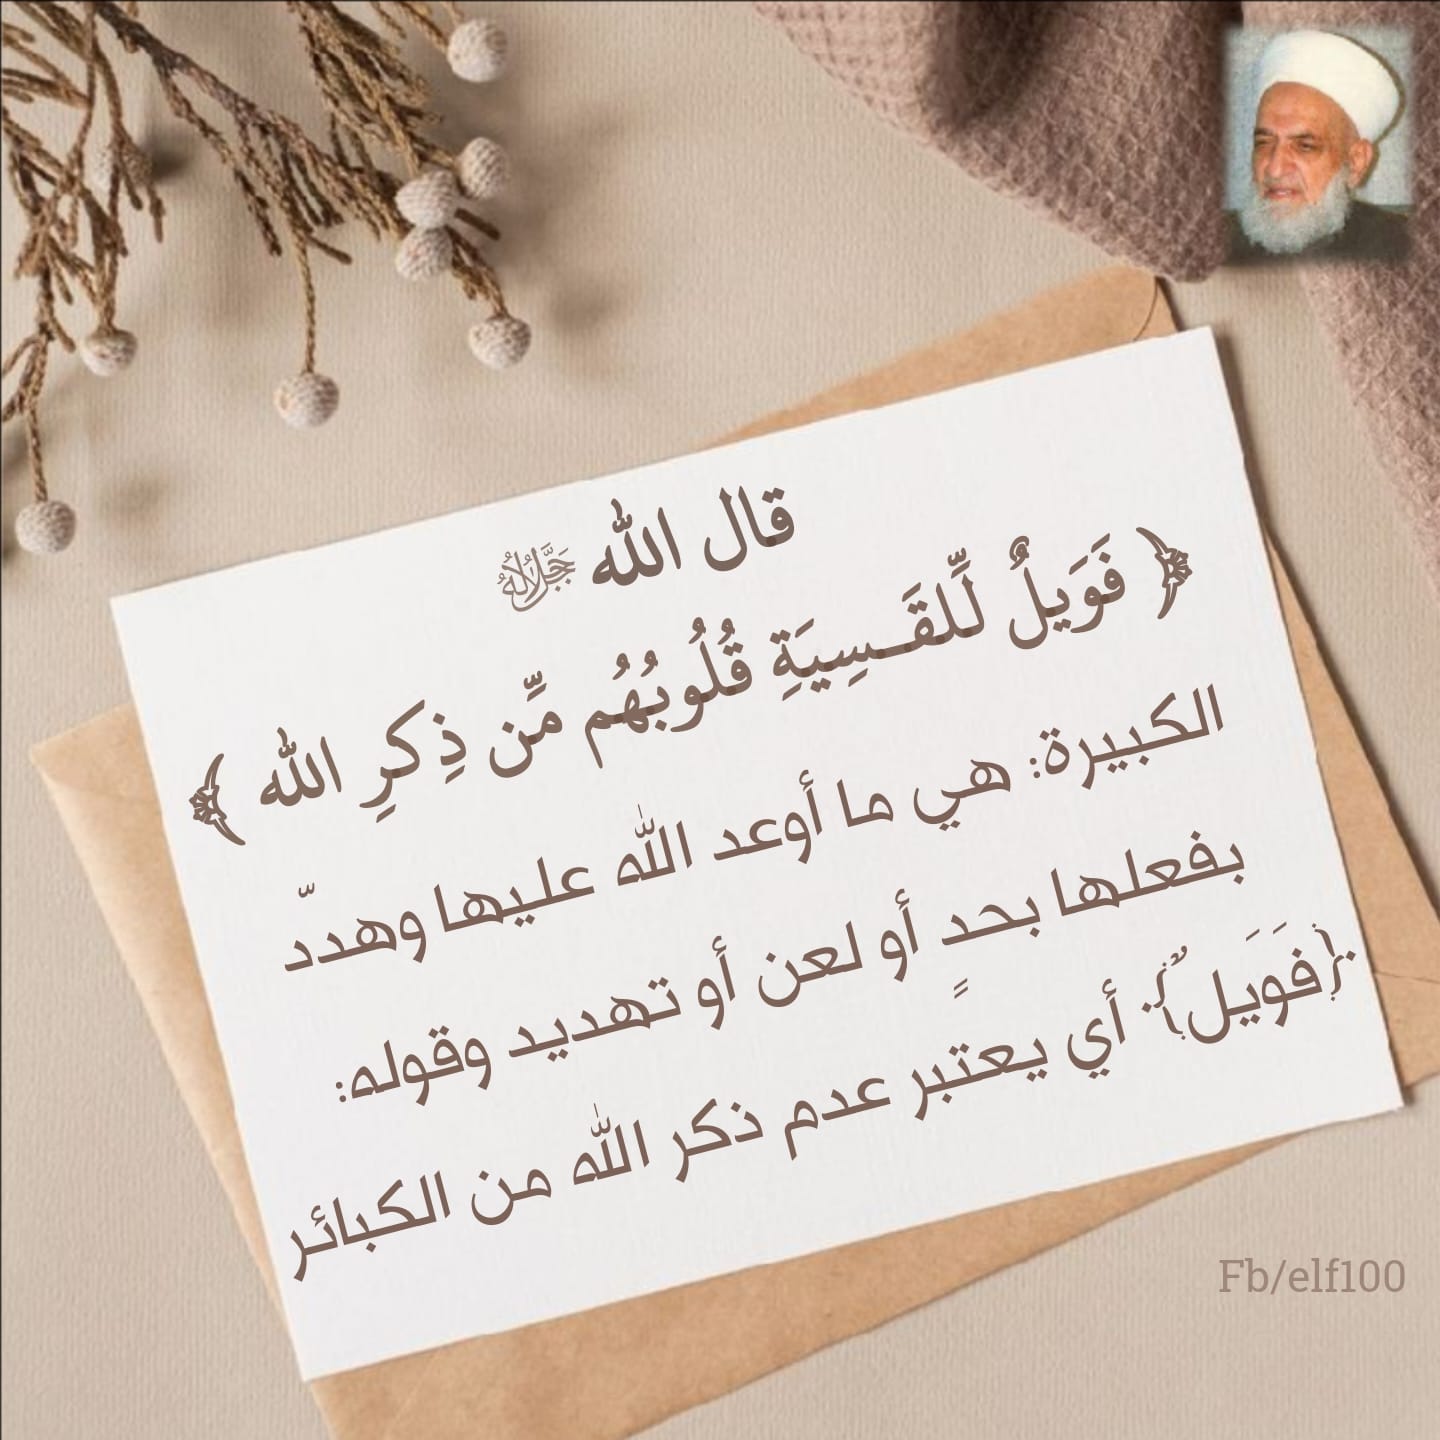 قال الله ﷻ
﴿ فَوَيلٌ لِّلقَـسِيَةِ قُلُوبُهُم مِّن ذِكرِ الله ﴾
الكبيرة: هي ما أوعد الله عليها وهددّ
بفعلها بحدٍ أو لعن أو تهديد وقوله:
{فَوَيَلٌ} أي يعتبر عدم ذكر الله من الكبائر
Fb/elf100